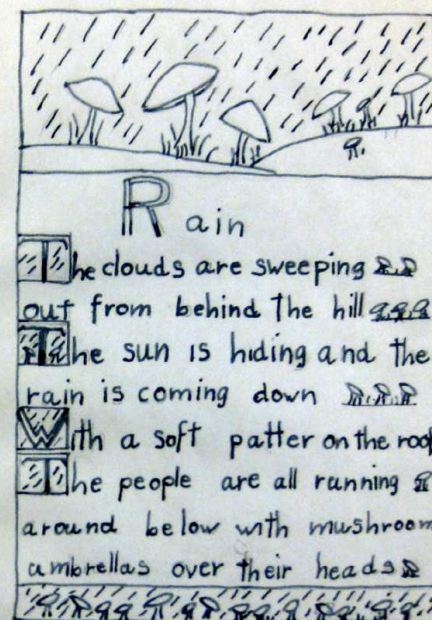 Rain
The clouds are sweeping
out from behind the hill
The sun is hiding and the
rain is coming down
With a soft patter on the roof
The people are all running
around below with mushroom
umbrellas over their heads